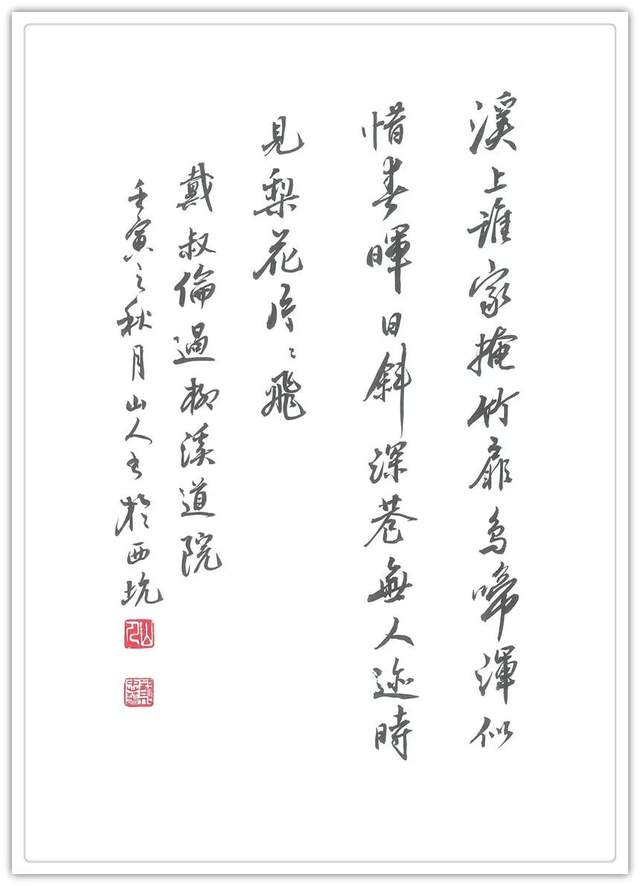 溪上誰家掩竹扉鳥啼渾似
惜春暉日斜深巷無人迹時
見梨花片〻飛
戴叔倫過柳溪道院
壬寅之秋月山人書於西坑
山人